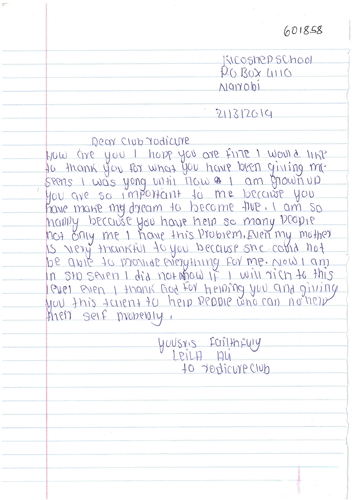 601858
Ricoshep school
PO Box 4110
Nairobi
21/3/2019
Dear Club rodicure
How are you I hope you are fine I would like
to thank you for what you have been giving me
seens I was yong until now I am grown up
you are so important to me because you
have make my dream to become true. I am so
happy because you have help so many people
not only me I have this problem. Even my mother
is very thankful to you because she could not
be able to provide everything for me. Now I am
in STD seven I did not know if I will rich to this
level even I thank God for helping you and giving
you this talent to help people who can no help
their self properly.
yousrs faithfuly
LeilA Ali
to rodicure club